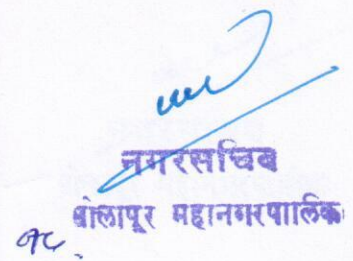 नगरसचिव
सोलापूर महानगरपालिक